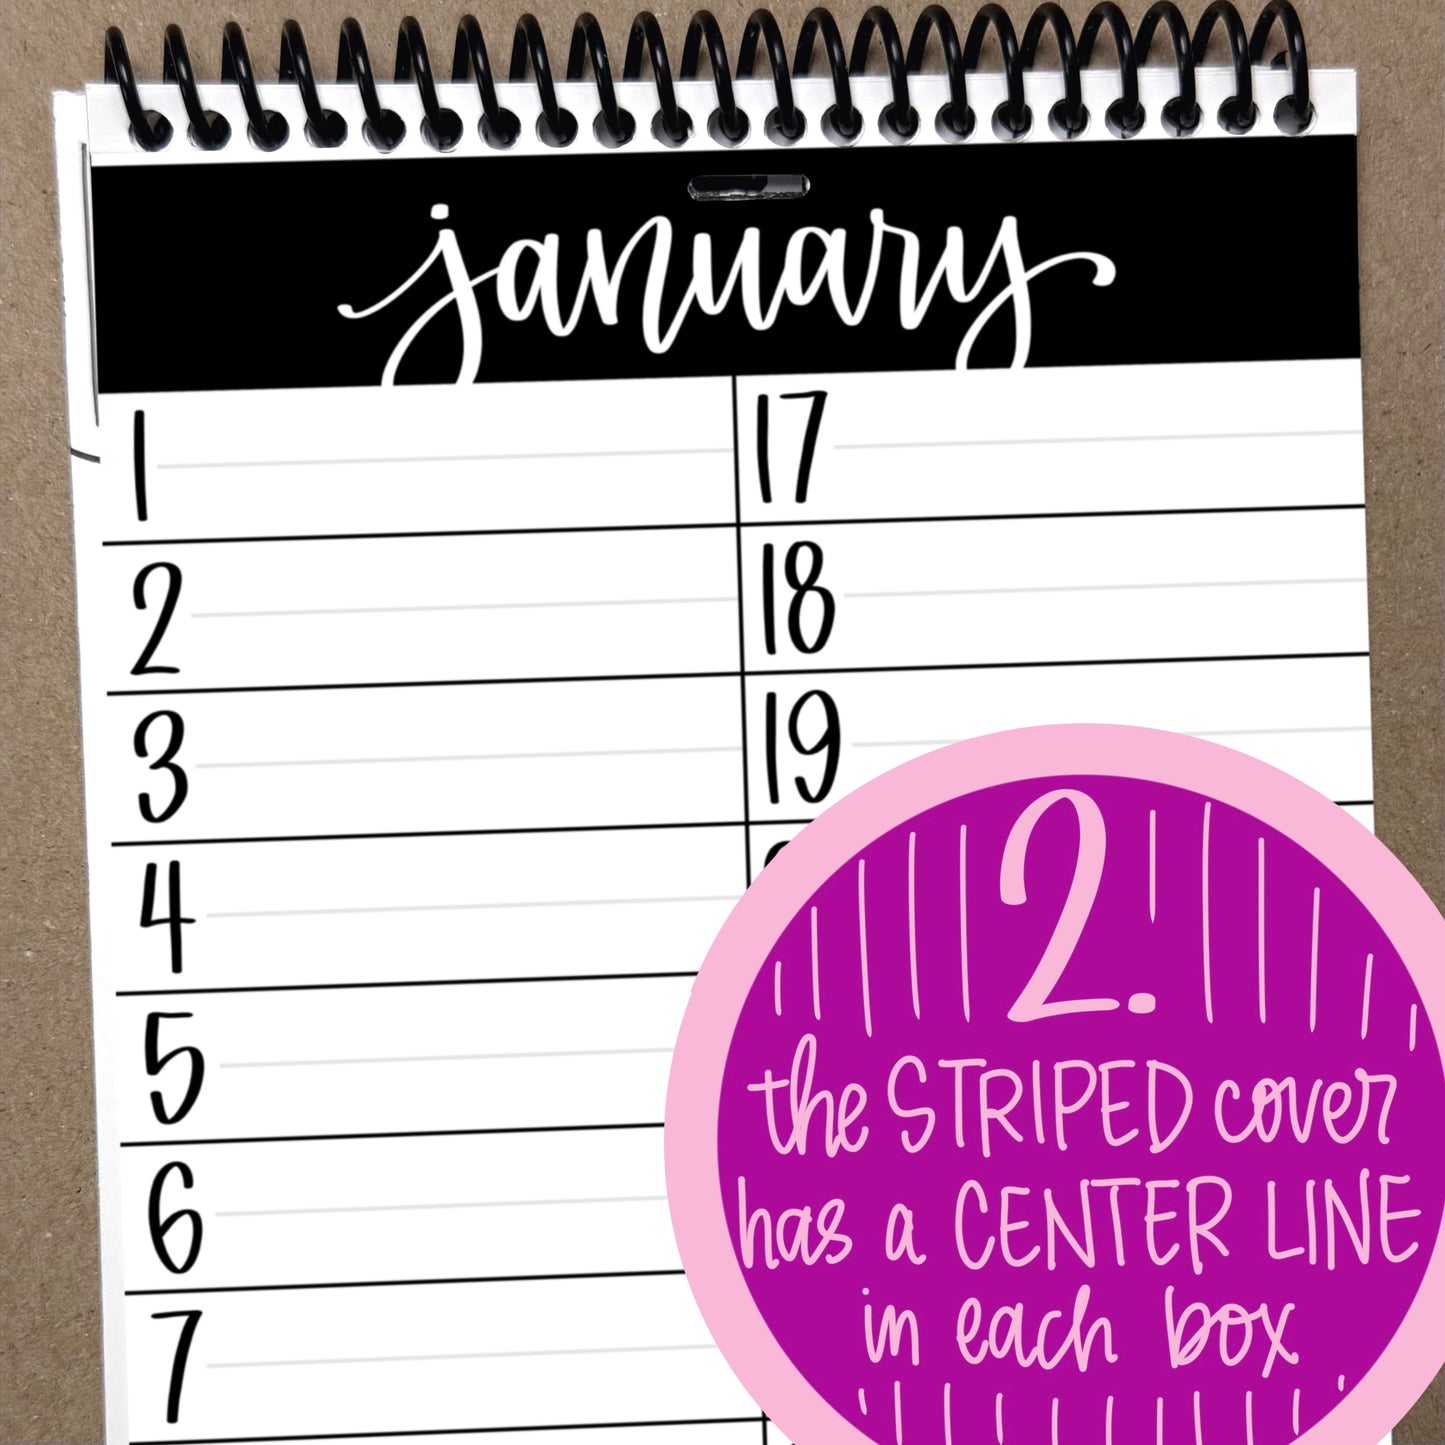 january
1
17
2
18
3
19
4
5
6
7
2.
the STRIPED cover
has a CENTER LINE
in each box